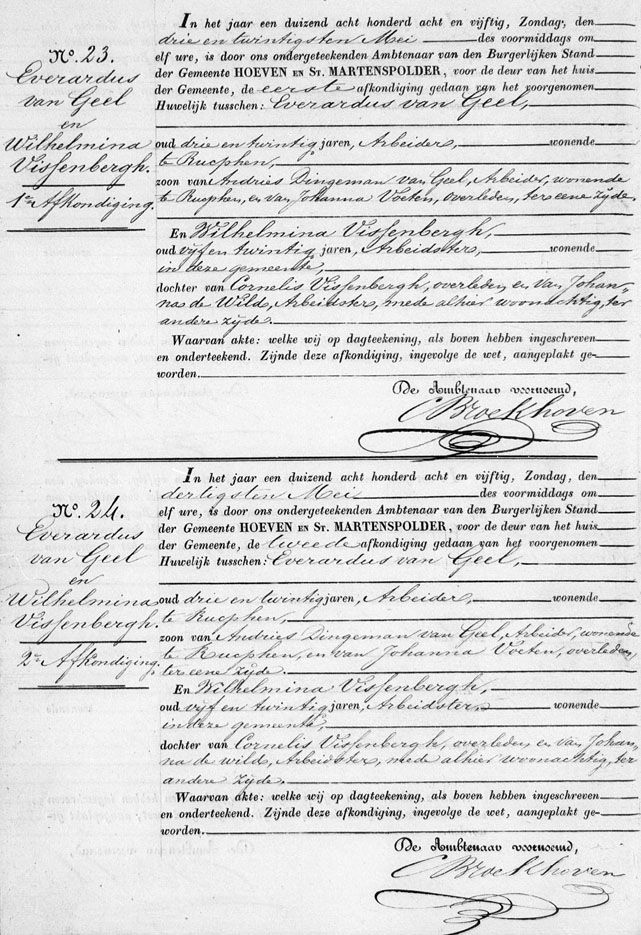 No. 23.
Everardus
van Geel
en
Wilhelmina
Vissenbergh.
1ste Afkondiging.
In het jaar een duizend acht honderd acht en vijftig, Zondag, den
drie en twintigsten Mei des voormiddags om
elf ure, is door ons ondergeteekenden Ambtenaar van den Burgerlijken Stand
der Gemeente HOEVEN EN ST. MARTENSPOLDER, voor de deur van het huis
der Gemeente, de eerste afkondiging gedaan van het voorgenomen
Huwelijk tusschen: Everardus van Geel,
oud drie en twintig jaren, Arbeider, wonende
te Rucphen,
zoon van Andries Dingeman van Geel, Arbeider, wonende
te Rucphen, en van Johanna Voeten, overleden, ter eene zijde.
En Wilhelmina Vissenbergh,
oud vijf en twintig jaren, Arbeidster, wonende
in deze gemeente,
dochter van Cornelis Vissenbergh, overleden, en van Johan-
na de Wild, Arbeidster, mede alhier woonachtig, ter
andere zijde.
Waarvan akte: welke wij op dagteekening, als boven hebben ingeschreven
en onderteekend. Zijnde deze afkondiging, ingevolge de wet, aangeplakt ge-
worden.
De Ambtenaar voornoemd,
C Broekhoven
No. 24.
Everardus
van Geel
en
Wilhelmina
Vissenbergh.
2e Afkondiging.
In het jaar een duizend acht honderd acht en vijftig, Zondag, den
dertigsten Mei des voormiddags om
elf ure, is door ons ondergeteekenden Ambtenaar van den Burgerlijken Stand
der Gemeente HOEVEN EN ST. MARTENSPOLDER, voor de deur van het huis
der Gemeente, de tweede afkondiging gedaan van het voorgenomen
Huwelijk tusschen: Everardus van Geel,
oud drie en twintig jaren, Arbeider, wonende
te Rucphen,
zoon van Andries Dingeman van Geel, Arbeider, wonende
te Rucphen, en van Johanna Voeten, overleden,
ter eene zijde.
En Wilhelmina Vissenbergh,
oud vijf en twintig jaren, Arbeidster, wonende
in deze gemeente,
dochter van Cornelis Vissenbergh, overleden, en van Johan-
na de wild, Arbeidster, mede alhier woonachtig, ter
andere zijde.
Waarvan akte: welke wij op dagteekening, als boven hebben ingeschreven
en onderteekend. Zijnde deze afkondiging, ingevolge de wet, aangeplakt ge-
worden.
De Ambtenaar voornoemd,
C Broekhoven